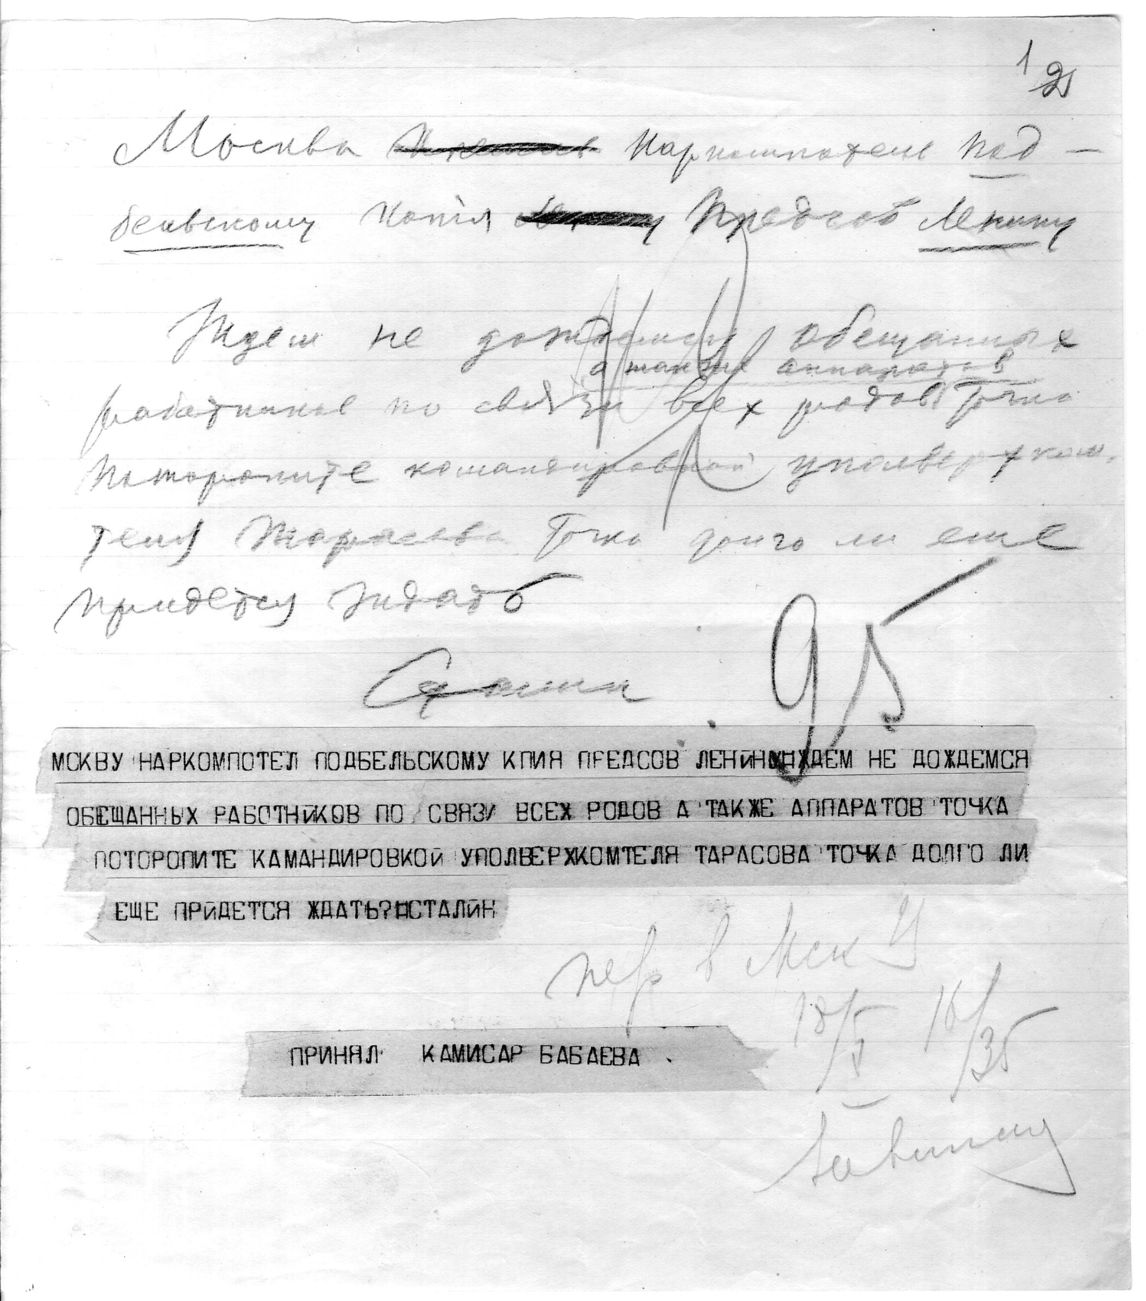 1 2
Москва Наркомпотель Под-
бельскому Копія Предсов Ленину
Ждем не дождемся обещанных
а также аппаратов
работников по связи всех родов Точка
Поторопите командировкой уполверхком.
теля Тарасова Точка долго ли еще
придется ждать
Сталин
95
МСКВУ НАРКОМПОТЕЛ ПОДБЕЛЬСКОМУ КПИЯ ПРЕДСОВ ЛЕНИН ЖДЕМ НЕ ДОЖДЕМСЯ
ОБЕЩАННЫХ РАБОТНИКОВ ПО СВЯЗИ ВСЕХ РОДОВ А ТАКЖЕ АППАРАТОВ ТОЧКА
ПОТОРОПИТЕ КАМАНДИРОВКОЙ УПОЛВЕРХКОМТЕЛЯ ТАРАСОВА ТОЧКА ДОЛГО ЛИ
ЕЩЕ ПРИДЕТСЯ ЖДАТЬ? СТАЛИН
пер в Мск У
18/5 16/35
ПРИНЯЛ КАМИСАР БАБАЕВА .